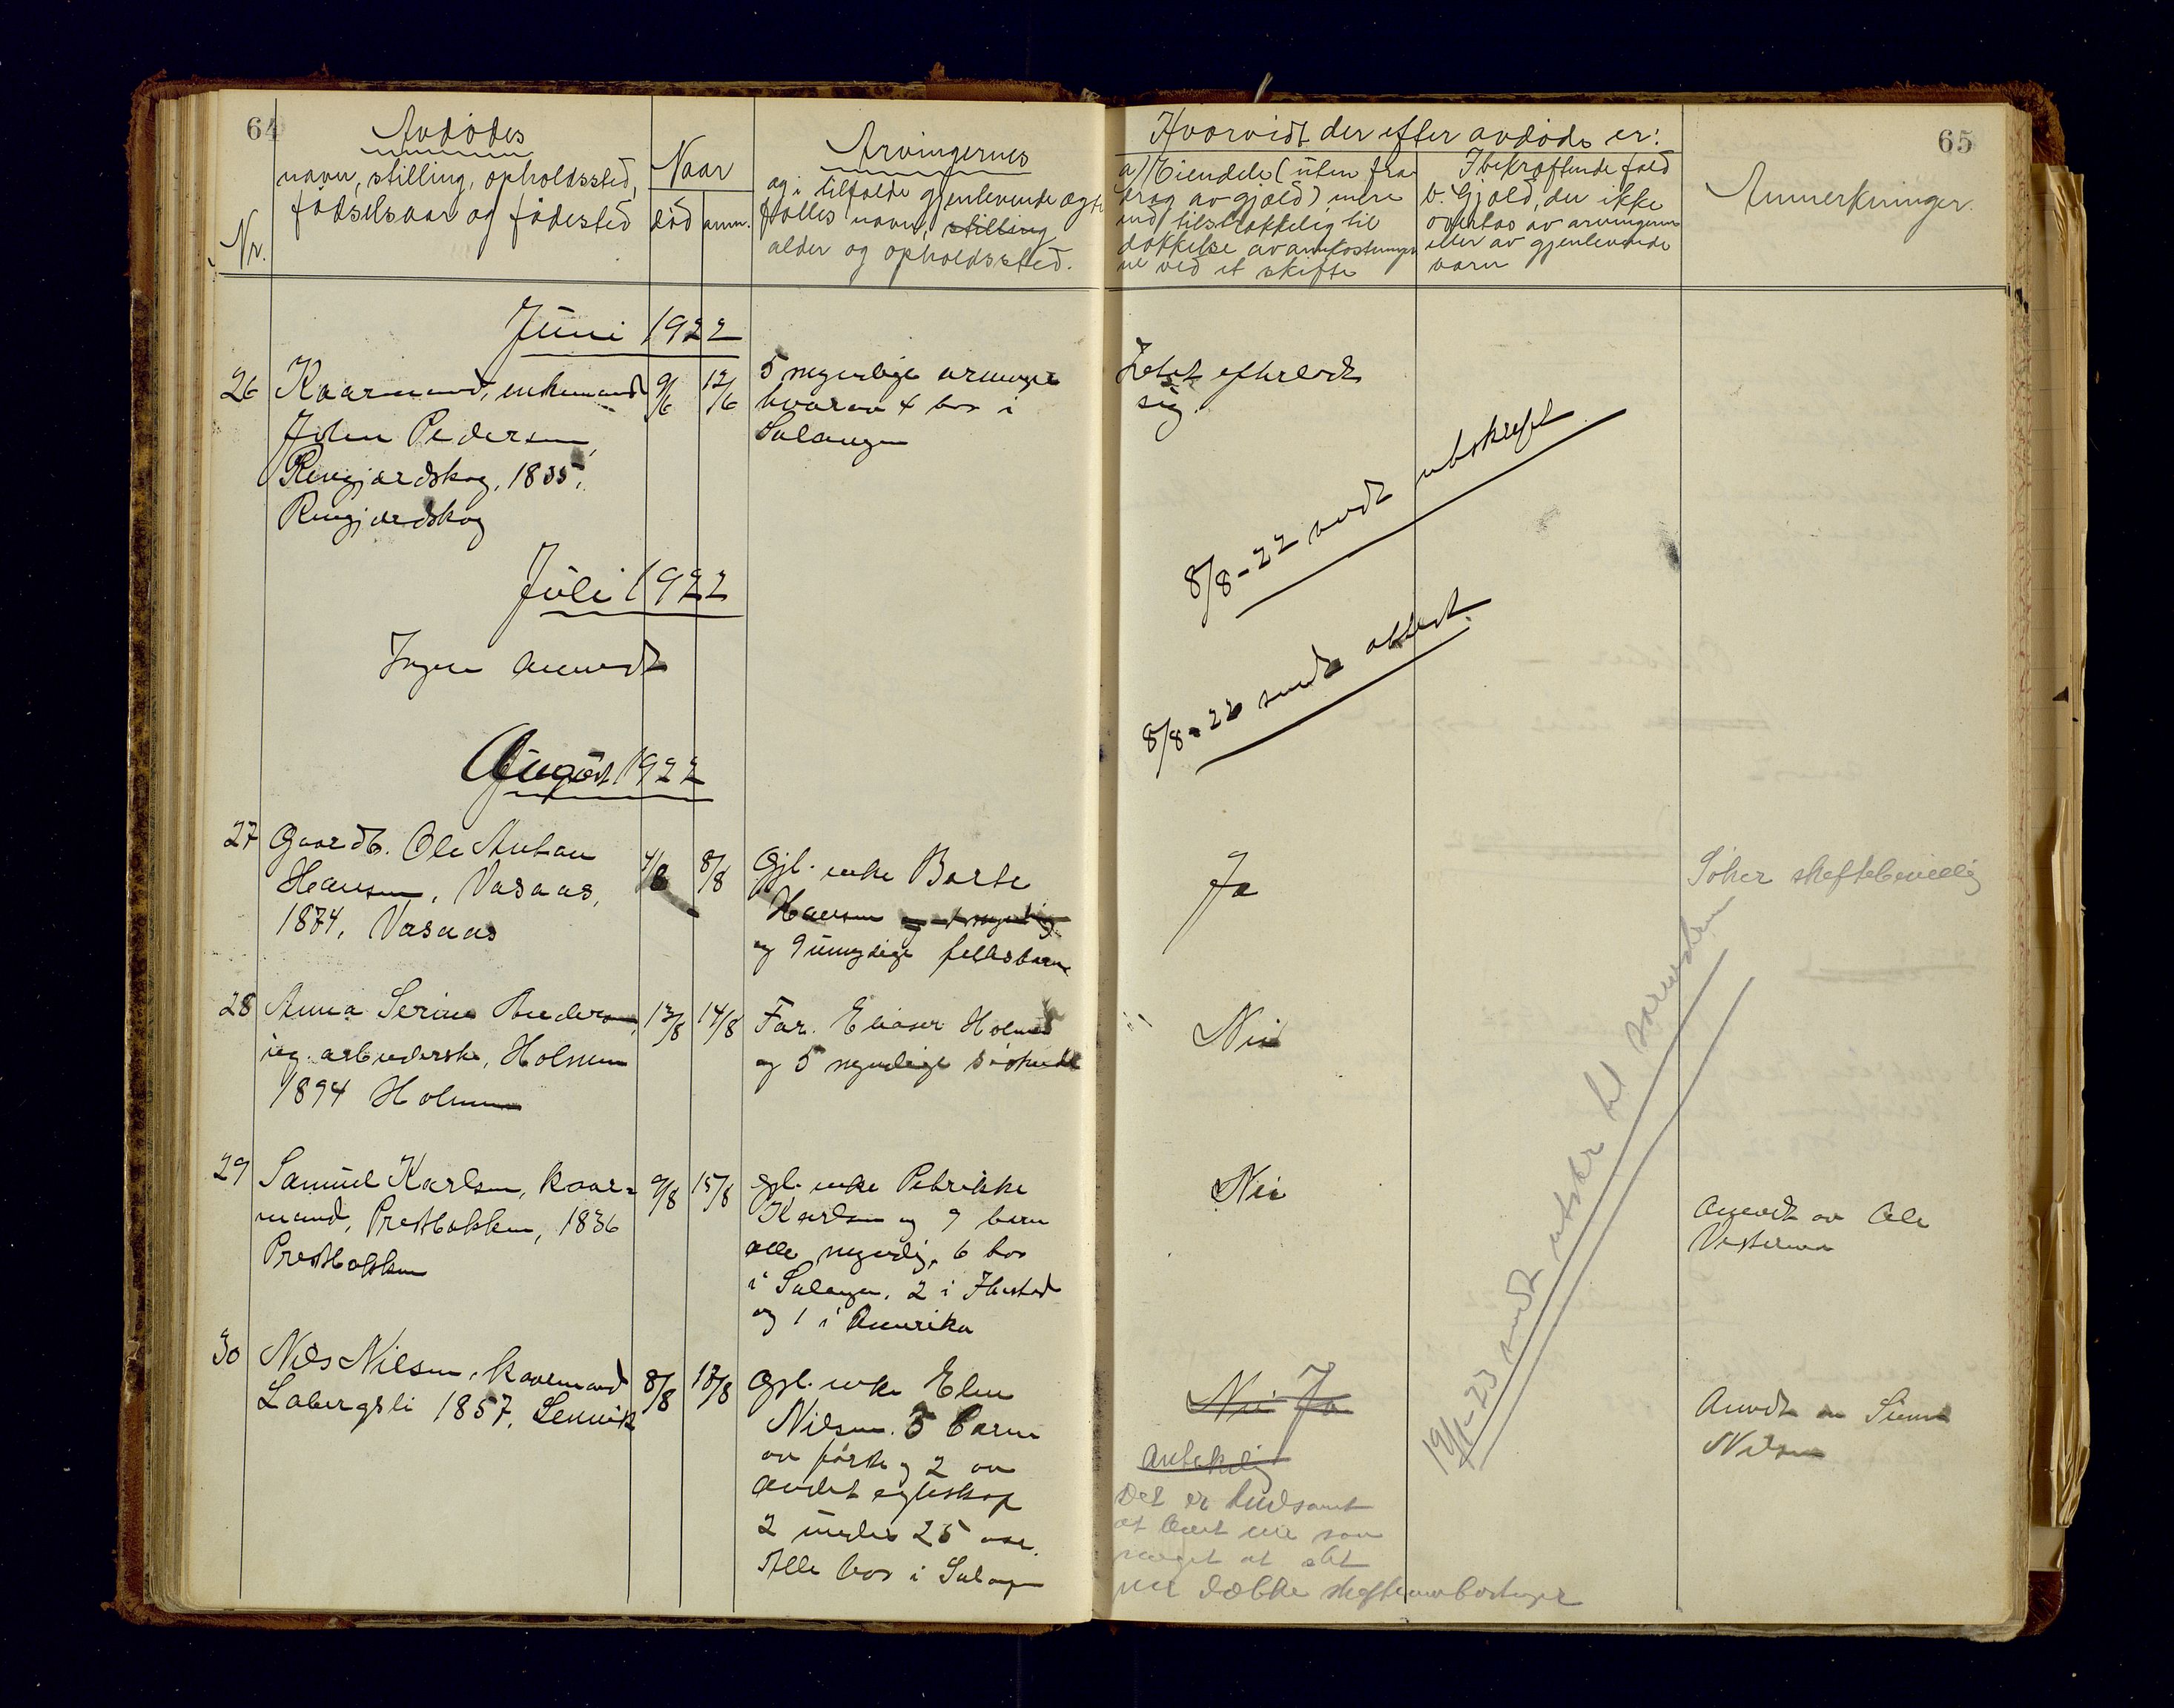 64
Avdødes
navn, stilling, opholdssted,
fødselsaar og fødested
Nr.
Naar
død anm.
Arvingernes
og i tilfælde gjenlevende ægte
fælles navn, stilling
alder og opholdssted.
Juni 1922
26 Kaarmand, enkemand
John Pedersen,
1835,
9/6 12/6
5 myndige arvinger
hvorav 4 bor i
Salangen
Juli 1922
Ingen anmeldt
August 1922
27 Gaardb. Ole Anton
Hansen, Vasaas,
1874, Vasaas
4/8 8/8
Gjl. enke Berte
Hansen
og 9 umyndige fellesbarn
28 Anna Serine
ug. arbeiderske, Holmen
1894 Holmen
13/8 14/8
Far. Eliaser Holmen
og 5 myndige søskende
29 Samuel Karlsen, kaar-
mand, Prestbakken, 1836
Prestbakken
9/8 15/8
gjl. enke Petrikke
Karlsen og 9 barn
alle myndig, 6 bor
i Salangen, 2 i Ibestad
og 1 i Amerika
30 Nils Nilsen, kaarmand
Labergsli 1857,
8/8 18/8
Gjl. enke Elen
Nilsen. 3 barn
av første og 2 av
andet egteskap
2 under 25 aar.
Alle bor i Salangen
65
Hvorvidt der efter avdøde er:
a) Eiendele (uten fra
drag av gjæld) mere
end tilstrækkelig til
dækkelse av omkostninge
ne ved et skifte
I bekræftende fald
b. Gjæld, der ikke
overtas av arvingerne
eller av gjenlevende
Anmerkninger.
Intet efterladt
sig.
8/8-22 sendt utskrift
8/8-22 sendt attest.
Ja
Søker skiftebevilling
Nei
Nei
Anmeldt av Ole
19/1-23 sendt utskr til sorenskr
Nei Ja
Antakelig
Det er
at boet
meget at det
dække skifteomkostninger
Anmeldt av
Nilsen